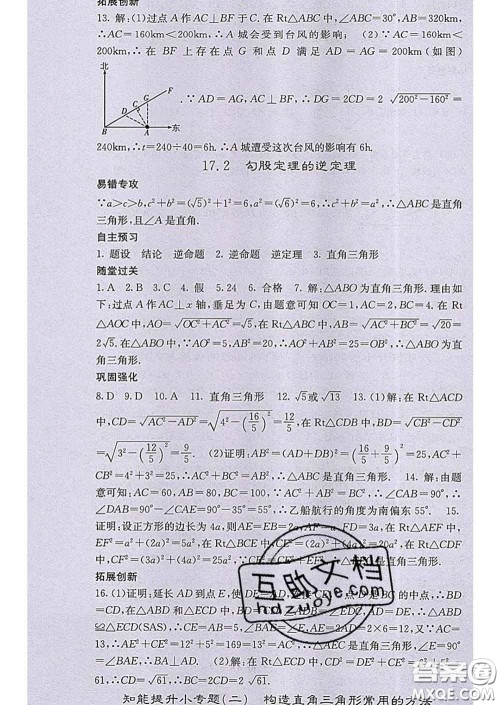 拓展创新
13. 解:(1)过点 A 作 AC⊥BF 于 C. 在 Rt△ABC 中,∠ABC=30°, AB=320km,
∴AC=160km<200km. ∴A 城会受到台风的影响; (2)∵AC=160km<
200km, ∴在 BF 上存在点 G 和点 D 满足 AD=AG=200km(如图)
北
F
G
C
D
B
A
东
. ∵AD=AG, AC⊥BF, ∴DG=2CD=2 √(200²-160²)=
240km, ∴t=240÷40=6h. ∴A 城遭受这次台风的影响有 6h.
17.2 勾股定理的逆定理
易错专攻
∵a>c>b, c²+b²=(√5)²+1²=6, a²=(√6)²=6, c²+b²=a², ∴△ABC 是直角
三角形,且∠A 是直角.
自主预习
1. 题设 结论 逆命题 2. 逆命题 逆定理 3. 直角三角形
随堂过关
1. A 2. B 3. C 4. 假 5. 24 6. 合格 7. 解:△ABO 为直角三角形. 理由如
下:过点 A 作 AC⊥x 轴,垂足为 C,由题意可知 OC=1, AC=2, BC=4. 在 Rt
△AOC 中, AO=√(OC²+AC²)=√5. 在 Rt△ABC 中, AB=√(AC²+BC²)=√20=
2√5. 在△ABO 中, ∵AO²+AB²=5+20=25=OB², ∴△ABO 为直
角三角形.
巩固强化
8. D 9. D 10. A 11. 直角三角形 12. √5或√13 13. (1)解:在 Rt△ACD
中, CD=√(AC²-AD²)=√(4²-(16/5)²)=12/5, 在 Rt△BCD 中, BD=√(CB²-CD²)
=√(3²-(12/5)²)=9/5. (2)证明:AB²=(AD+DB)²=(16/5+9/5)²=25, ∵AC²+
BC²=4²+3²=25, ∴AC²+BC²=AB², ∴△ABC 是直角三角形. 14. 解:由题
意可知:AC=60, AB=80, BC=100, ∵AC²+AB²=BC², ∴∠CAB=90°,
∠DAB=90°-∠CAE=90°-35°=55°, ∴乙船航行的角度为南偏东 55°. 15.
证明:设正方形的边长为 4a,则 AE=EB=2a, AF=a, FD=3a, 在 Rt△AEF 中,
EF²=a²+(2a)²=5a², 在 Rt△BCE 中, CE²=(2a)²+(4a)²=20a², 在 Rt△CDF
中, CF²=(3a)²+(4a)²=25a², ∴CF²=EF²+CE², ∴∠CEF=90°.
拓展创新
16. (1)证明:延长 AD 到点 E, 使 DE=AD, 连接 CE, ∵D 是 BC 的中点, ∴BD
=CD, 在△ABD 和△ECD 中, ∵BD=CD, ∠ADB=∠EDC, AD=ED, ∴△ABD
≌△ECD(SAS), ∴CE=AB=5, ∠BAE=∠E, ∵AE=2AD=2×6=12, 又∵AC=13,
∴AE²+CE²=12²+5²=169=13²=AC², ∴△ACE 是直角三角形,且∠E=90°,
∴∠BAE=90°, ∴BA⊥AD. (2)解:在 Rt△ECD 中, CD²=DE²+CE²=6²+5²=
61.
知能提升小专题(二) 构造直角三角形常用的方法
互助文档
hdzuoye.com
答案圈
MXQE.COM